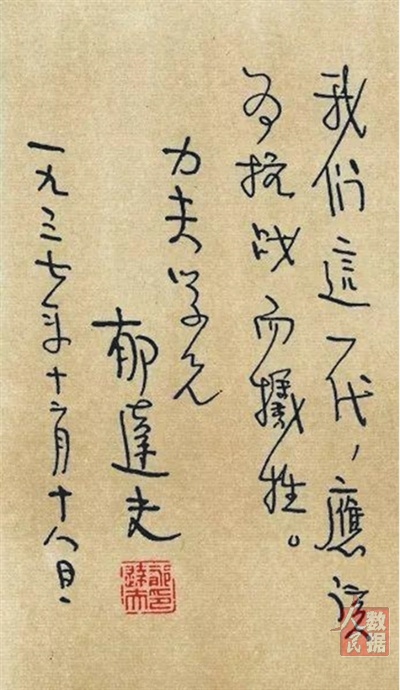 我们這一代，應该
为抗战而犧牲。
力夫学兄
郁達夫
一九三七年十二月十八日.
郁印
達夫
人民数据